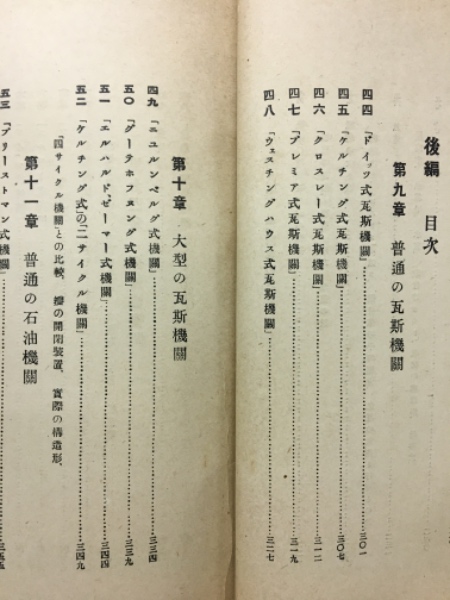 後編 目次
第九章 普通の瓦斯機關
四四 「ドイッツ式瓦斯機關」…………三〇一
四五 「ケルチング式瓦斯機關」…………三〇七
四六 「クロスレー式瓦斯機關」…………三一二
四七 「プレミア式瓦斯機關」…………三一九
四八 「ウェスチングハウス式瓦斯機關」…………三二七
第十章 大型の瓦斯機關
四九 「ニュルンベルグ式機關」…………三三四
五〇 「グーテホフヌング式機關」…………三三九
五一 「エルハルド、ゼーマー式機關」…………三四四
五二 「ケルチング式」の「二サイクル機關」…………三四九
「四サイクル機關」との比較、瓣の開閉裝置、實際の構造形、
第十一章 普通の石油機關
五三 「プリーストマン式機關」…………三五五